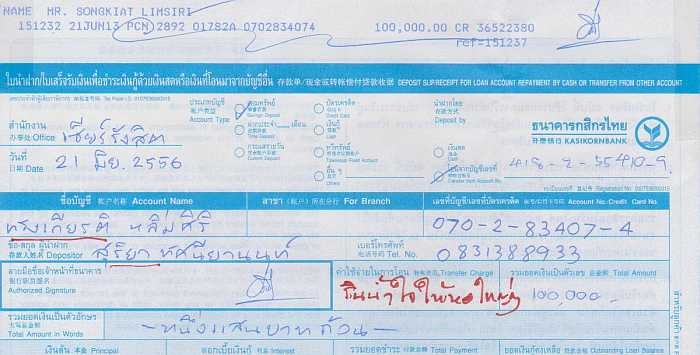 NAME MR. SONGKIAT LIMSIRI
151232 21JUN13 PCN 2892 01782A 0702834074 100,000.00 CR 36522380
ref=151237
ใบนำฝาก/ใบเสร็จรับเงินเพื่อชำระเงินกู้ด้วยเงินสดหรือเงินที่โอนมาจากบัญชีอื่น 存款单/现金或转帐偿付贷款收据 DEPOSIT SLIP/RECEIPT FOR LOAN ACCOUNT REPAYMENT BY CASH OR TRANSFER FROM OTHER ACCOUNT
ประเภทบัญชี
Account Type
Savings Deposit
Current Deposit
นำฝากโดย
存款方式
Deposit by
ธนาคารกสิกรไทย
开泰银行 KASIKORNBANK
สำนักงาน
办事处 Office เซียร์รังสิต
วันที่
日期 Date 21 มิย. 2556
เงินสด
418-2-35410-9
ชื่อบัญชี 帐户名称 Account Name สาขา (帐户) 所在分行 For Branch เลขที่บัญชี/เลขที่บัตรเครดิต Account No./Credit Card No.
ทรงเกียรติ หลิ่มศิริ 070-2-83407-4
ชื่อ-สกุล ผู้นำฝาก
存款人姓名 Depositor สุริยา ทัศนียานนท์
เบอร์โทรศัพท์
电话号码 Tel. No. 0831388933
ลายมือชื่อเจ้าหน้าที่ธนาคาร
银行职员签名
Authorized Signature
ค่าใช้จ่ายในการโอน Transfer Charge รวมยอดเงินเป็นตัวเลข 总金额 Total Amount
100,000.-
รวมยอดเงินเป็นตัวอักษร
大写总金额
Total Amount in Words -หนึ่งแสนบาทถ้วน-
เงินต้น 本金 Principal ดอกเบี้ยเงินกู้ รวมยอดชำระ Total Payment ยอดเงินคงเหลือ Outstanding Balance